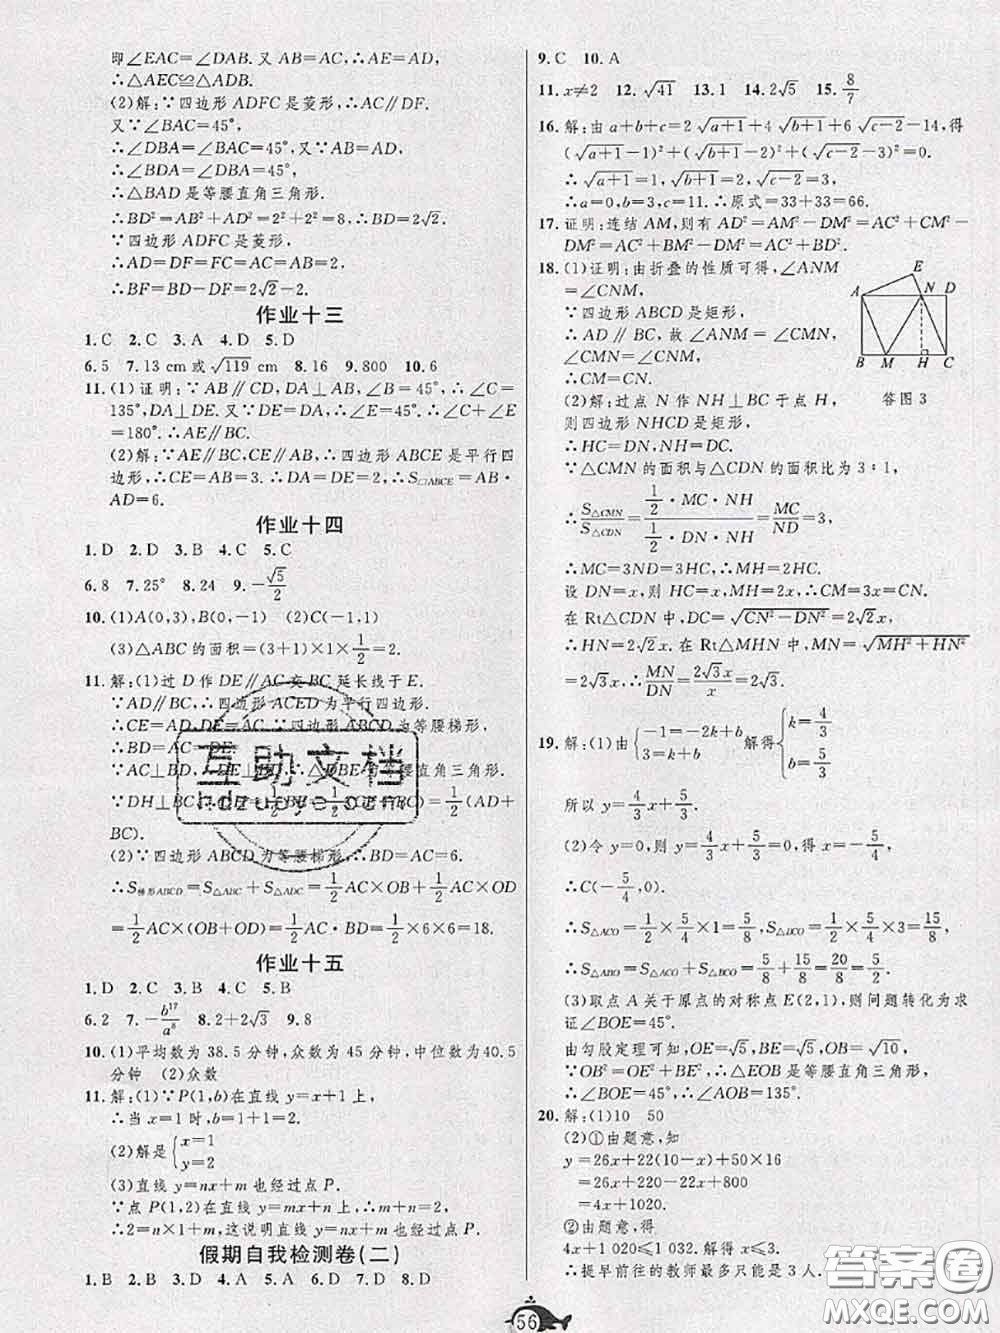 即∠EAC=∠DAB.又AB=AC,∴AE=AD.
∴△AEC≌△ADB.
(2)解:∵四边形ADFC是菱形,∴AC∥DF.
又∵∠BAC=45°,
∴∠DBA=∠BAC=45°,又∵AB=AD,
∴∠DBA=∠BDA=45°.
∴△BAD是等腰直角三角形.
∴BD²=AB²+AD²=2²+2²=8,∴BD=2√2.
∵四边形ADFC是菱形,
∴AD=DF=FC=AC=AB=2.
∴BF=BD-DF=2√2-2.
作业十三
1.C 2.C 3.A 4.D 5.D
6.5 7.13 cm或√119 cm 8.16 9.800 10.6
11.(1)证明:∵AB∥CD,DA⊥AB,∠B=45°,∴∠C=
135°,DA⊥DE.又∵DE=DA,∴∠E=45°.∴∠C+∠E
=180°.∴AE∥BC.
(2)解:∵AE∥BC,CE∥AB,∴四边形ABCE是平行四
边形,∴CE=AB=3.∴DA=DE=2.∴S□ABCE=AB·
AD=6.
作业十四
1.D 2.D 3.B 4.C 5.C
6.8 7.25° 8.24 9.-√5/2
10.(1)A(0,3),B(0,-1) (2)C(-1,1)
(3)△ABC的面积=(3+1)×1×1/2=2.
11.解:(1)过D作DE∥AC交BC延长线于E.
∵AD∥BC,∴四边形ACED为平行四边形.
∴CE=AD,DE=AC.∵四边形ABCD为等腰梯形,
∴BD=AC=DE.
∵AC⊥BD,∴DE⊥BD.∴△DBE为等腰直角三角形.
∵DH⊥BC,∴DH=1/2BE=1/2(CE+BC)=1/2(AD+
BC).
(2)∵四边形ABCD为等腰梯形,∴BD=AC=6.
∴S梯形ABCD=S△ABC+S△ADC=1/2AC×OB+1/2AC×OD
=1/2AC×(OB+OD)=1/2AC·BD=1/2×6×6=18.
作业十五
1.D 2.C 3.B 4.C 5.B
6.2 7.-b¹⁷/a⁸ 8.2+2√3 9.8
10.(1)平均数为38.5分钟,众数为45分钟,中位数为40.5
分钟 (2)众数
11.解:(1)∵P(1,b)在直线y=x+1上,
∴当x=1时,b=1+1=2.
(2)解是{x=1
y=2
(3)直线y=nx+m也经过点P.
∵点P(1,2)在直线y=mx+n上,∴m+n=2.
∴2=n×1+m,这说明直线y=nx+m也经过点P.
假期自我检测卷(二)
1.B 2.B 3.C 4.A 5.C 6.D 7.D 8.D
9.C 10.A
11.x≠2 12.√41 13.1 14.2√5 15.8/7
16.解:由a+b+c=2√(a+1)+4√(b+1)+6√(c-2)-14,得
(√(a+1)-1)²+(√(b+1)-2)²+(√(c-2)-3)²=0.
∴√(a+1)=1,√(b+1)=2,√(c-2)=3.
∴a=0,b=3,c=11.∴原式=33+33=66.
17.证明:连结AM,则有AD²=AM²-DM²=AC²+CM²-
DM²=AC²+BM²-DM²=AC²+BD².
18.(1)证明:由折叠的性质可得,∠ANM
=∠CNM,
∵四边形ABCD是矩形,
∴AD∥BC,故∠ANM=∠CMN,
∴∠CMN=∠CNM,
∴CM=CN.
(2)解:过点N作NH⊥BC于点H,
则四边形NHCD是矩形,
∴HC=DN,NH=DC.
E
A N D
B M H C
答图3
∵△CMN的面积与△CDN的面积比为3∶1,
∴S△CMN/S△CDN=(1/2·MC·NH)/(1/2·DN·NH)=MC/ND=3,
∴MC=3ND=3HC,∴MH=2HC.
设DN=x,则HC=x,MH=2x,∴CM=3x=CN.
在Rt△CDN中,DC=√(CN²-DN²)=2√2x,
∴HN=2√2x.在Rt△MHN中,MN=√(MH²+HN²)
=2√3x,∴MN/DN=2√3x/x=2√3.
19.解:(1)由{-1=-2k+b
3=k+b 解得{k=4/3
b=5/3
所以y=4/3x+5/3.
(2)令y=0,则y=4/3x+5/3=0,
∴C(-5/4,0).
∴S△ACO=1/2×5/4×1=5/8,S△BCO=1/2×5/4×3=15/8,
∴S△ABO=S△ACO+S△BCO=5/8+15/8=20/8=5/2.
(3)取点A关于原点的对称点E(2,1),则问题转化为求
证∠BOE=45°.
由勾股定理可知,OE=√5,BE=√5,OB=√10,
∵OB²=OE²+BE²,∴△EOB是等腰直角三角形.
∴∠BOE=45°,∴∠AOB=135°.
20.解:(1)10 50
(2)①由题意,知
y=26x+22(10-x)+50×16
=26x+220-22x+800
=4x+1020.
②由题意,得
4x+1 020≤1 032.解得x≤3.
∴提早前往的教师最多只能是3人.
56
互助文档
hdzuoye.com
答案圈
MXQE.COM